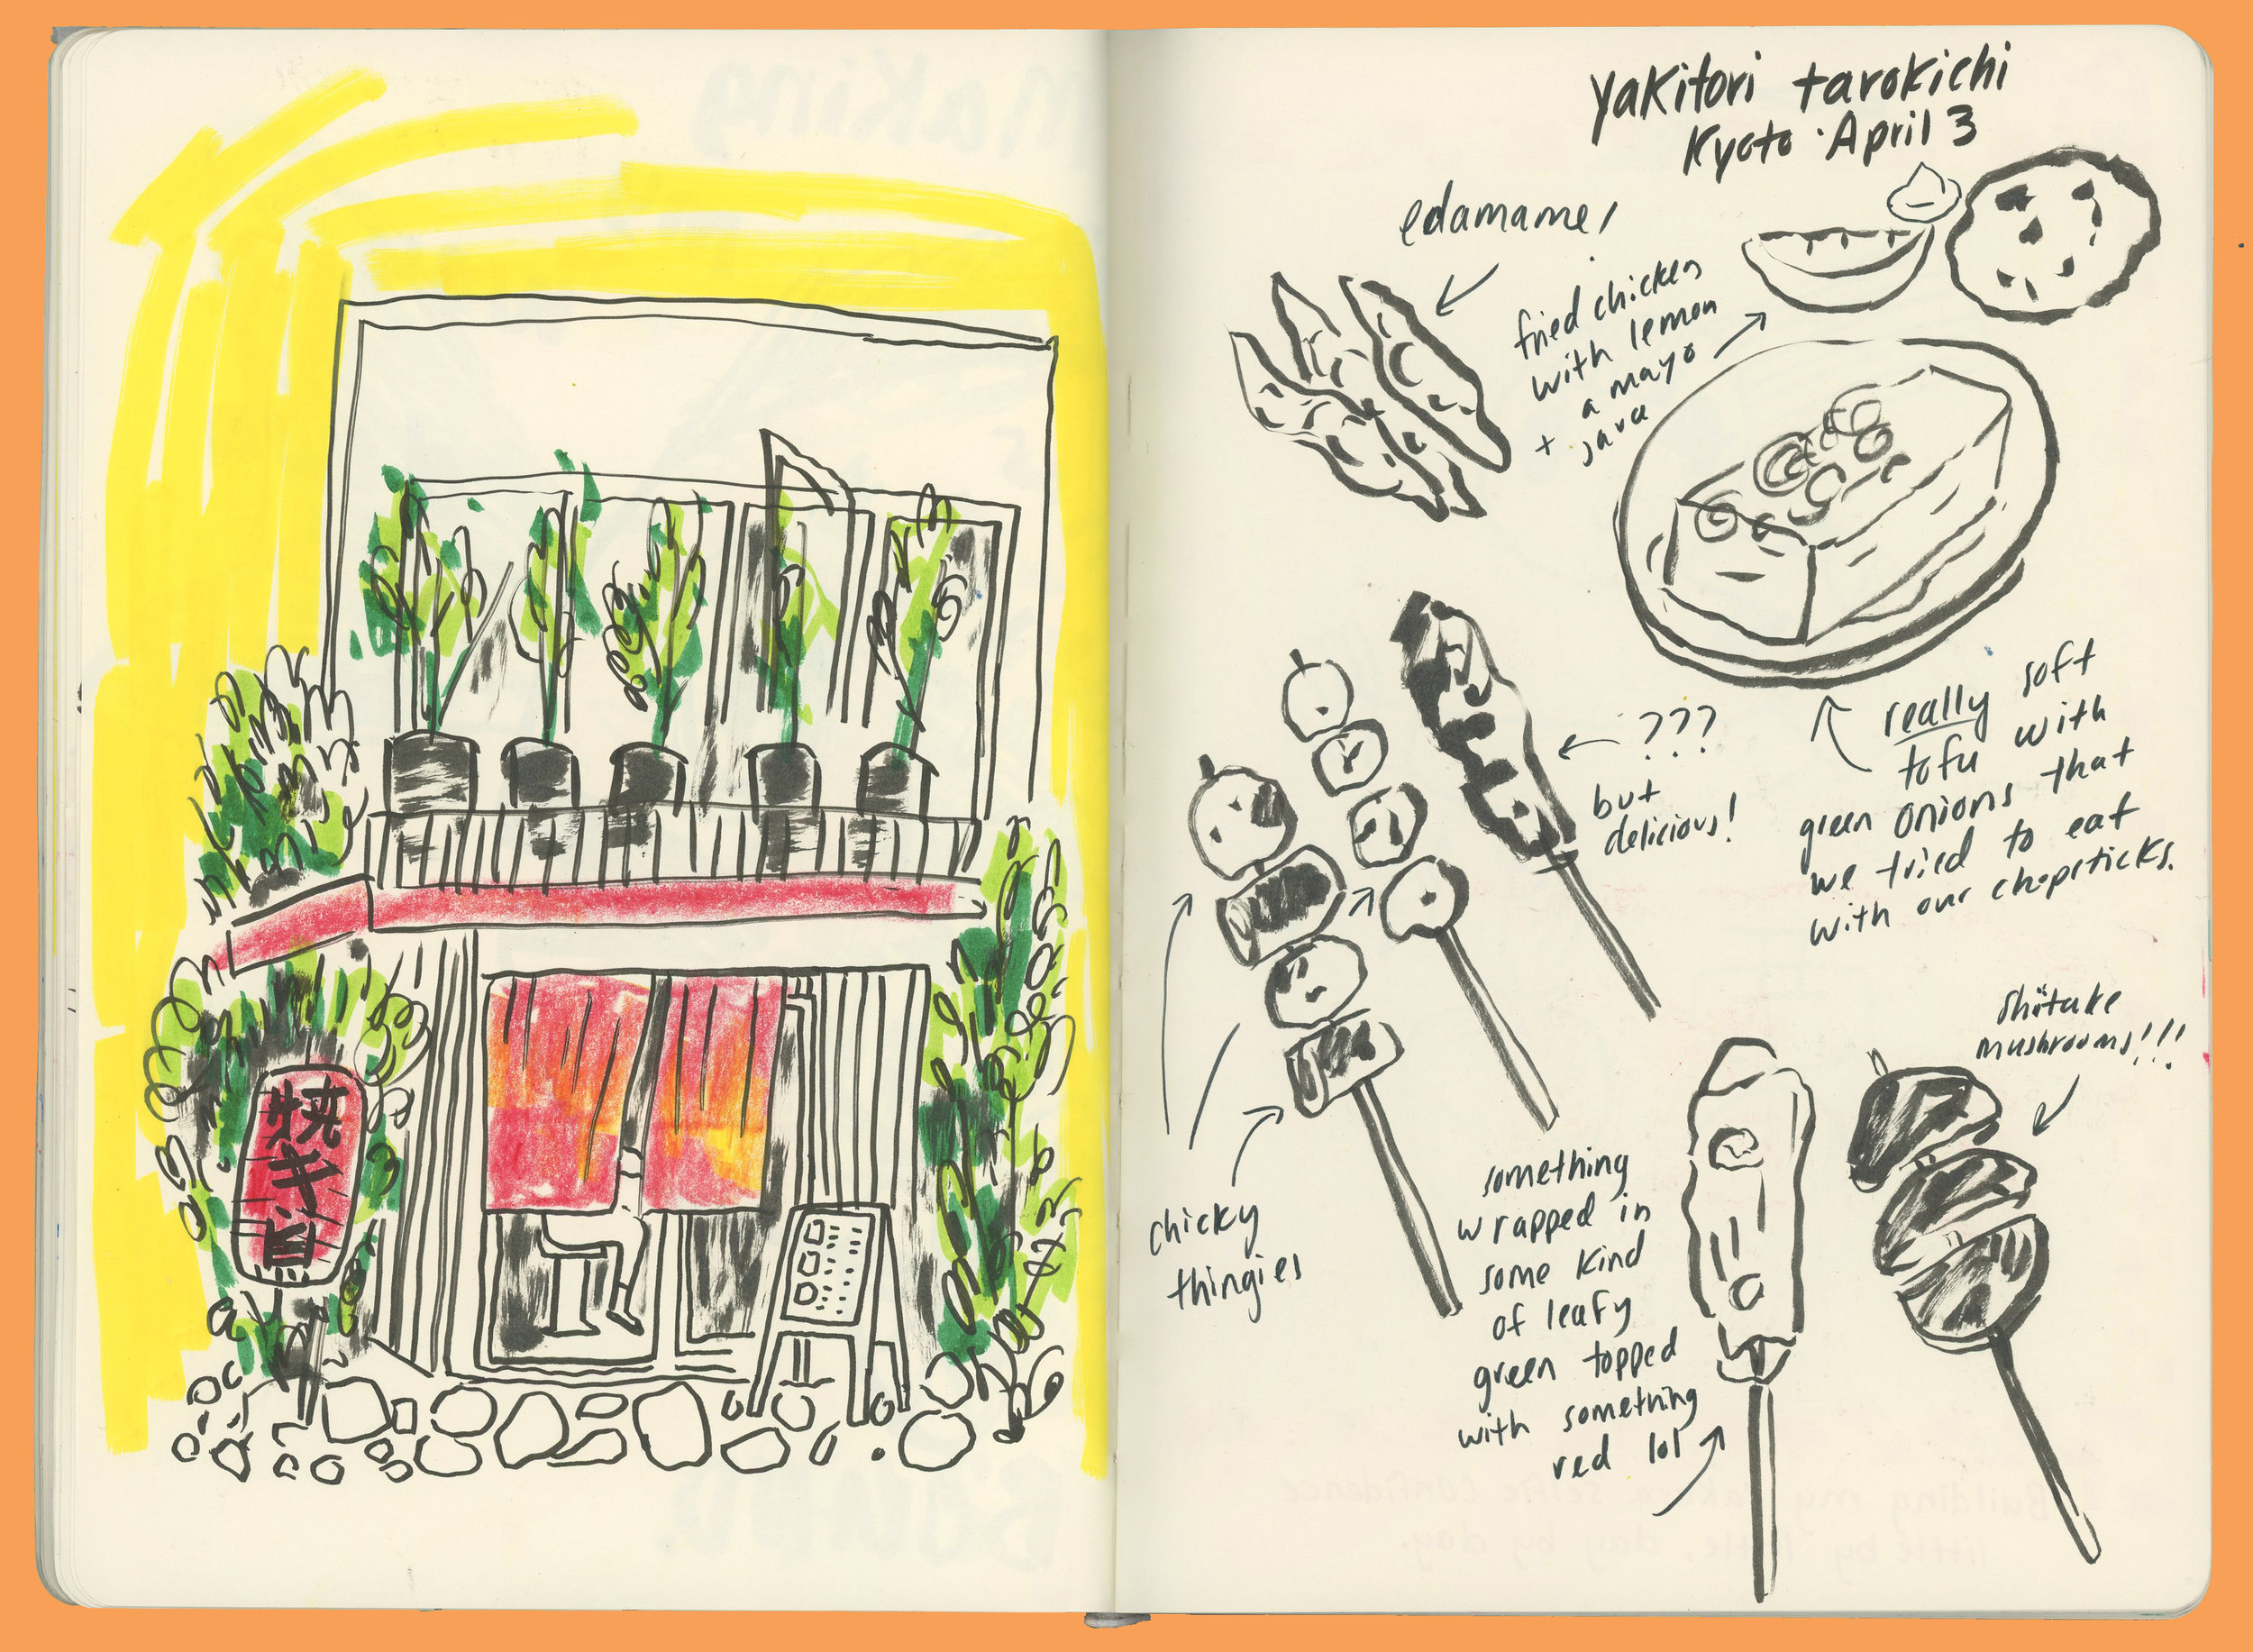 Yakitori tarokichi
Kyoto · April 3
edamame!
fried chicken
with lemon
a mayo
+
???
but
delicious!
really soft
tofu with
green onions that
we tried to eat
with our chopsticks.
chicky
thingies
something
wrapped in
some kind
of leafy
green topped
with something
red lol
shiitake
mushrooms!!!
キ